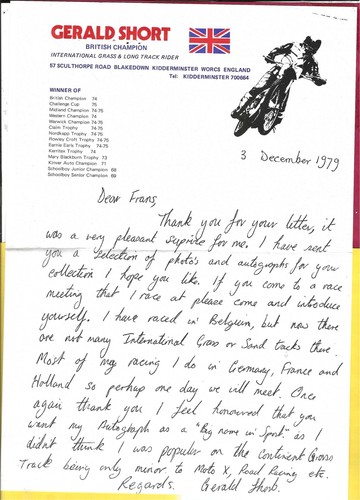 GERALD SHORT
BRITISH CHAMPION
INTERNATIONAL GRASS & LONG TRACK RIDER
57 SCULTHORPE ROAD BLAKEDOWN KIDDERMINSTER WORCS ENGLAND
Tel: KIDDERMINSTER 700864
WINNER OF
British Champion 74
Challenge Cup 75
Midland Champion 74-75
Western Champion 74
Warwick Champion 74-75
Claim Trophy 74-75
Nordkapp Trophy 74-75
Rowley Croft Trophy 74-75
Earnie Earls Trophy 74-75
Kerrites Trophy 74
Mary Blackburn Trophy 73
Kinver Auto Champion 71
Schoolboy Junior Champion 68
Schoolboy Senior Champion 69
3 December 1979
Dear Frans,
Thank you for your letter, it
was a very pleasant suprize for me. I have sent
you a selection of photo's and autographs for your
collection I hope you like. If you come to a race
meeting that I race at please come and introduce
yourself. I have raced in Belgium, but now there
are not many International Grass or Sand tracks there.
Most of my racing I do in Germany, France and
Holland so perhap one day we will meet. Once
again thank you I feel honoured that you
want my Autograph as a "Big name in Sport" as I
didn't think I was popular on the Continent Grass
Track being only minor to Moto X, Road Racing etc.
Regards. Gerald Short.